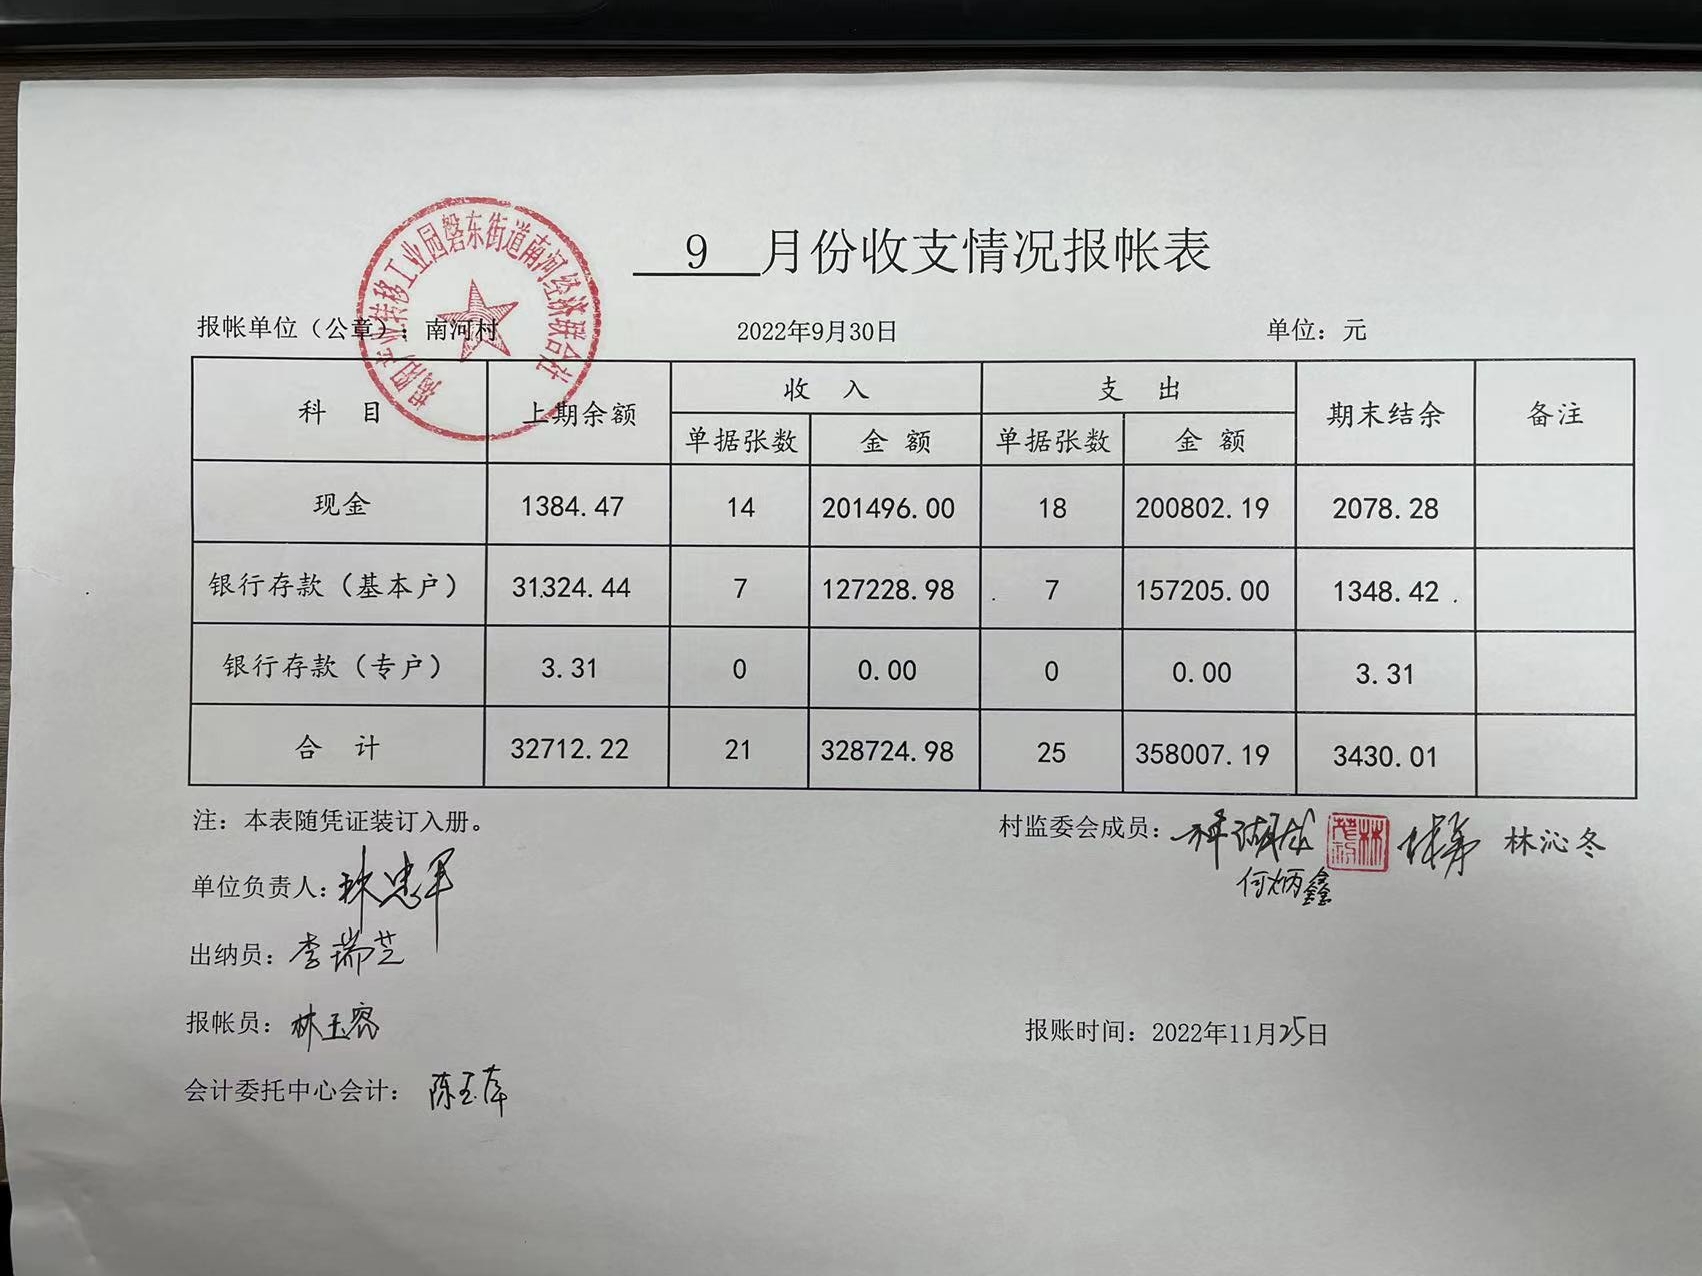 揭阳产业转移工业园磐东街道南河经济联合社
9 月份收支情况报帐表
报帐单位（公章）：南河村 2022年9月30日 单位：元
科 目 上期余额 收 入 支 出 期末结余 备注
单据张数 金 额 单据张数 金 额
现金 1384.47 14 201496.00 18 200802.19 2078.28
银行存款（基本户） 31324.44 7 127228.98 7 157205.00 1348.42
银行存款（专户） 3.31 0 0.00 0 0.00 3.31
合 计 32712.22 21 328724.98 25 358007.19 3430.01
注：本表随凭证装订入册。 村监委会成员： 林沁冬
何炳鑫
单位负责人：林忠军
出纳员：李瑞芝
报帐员：林玉容
报账时间：2022年11月25日
会计委托中心会计：陈玉萍